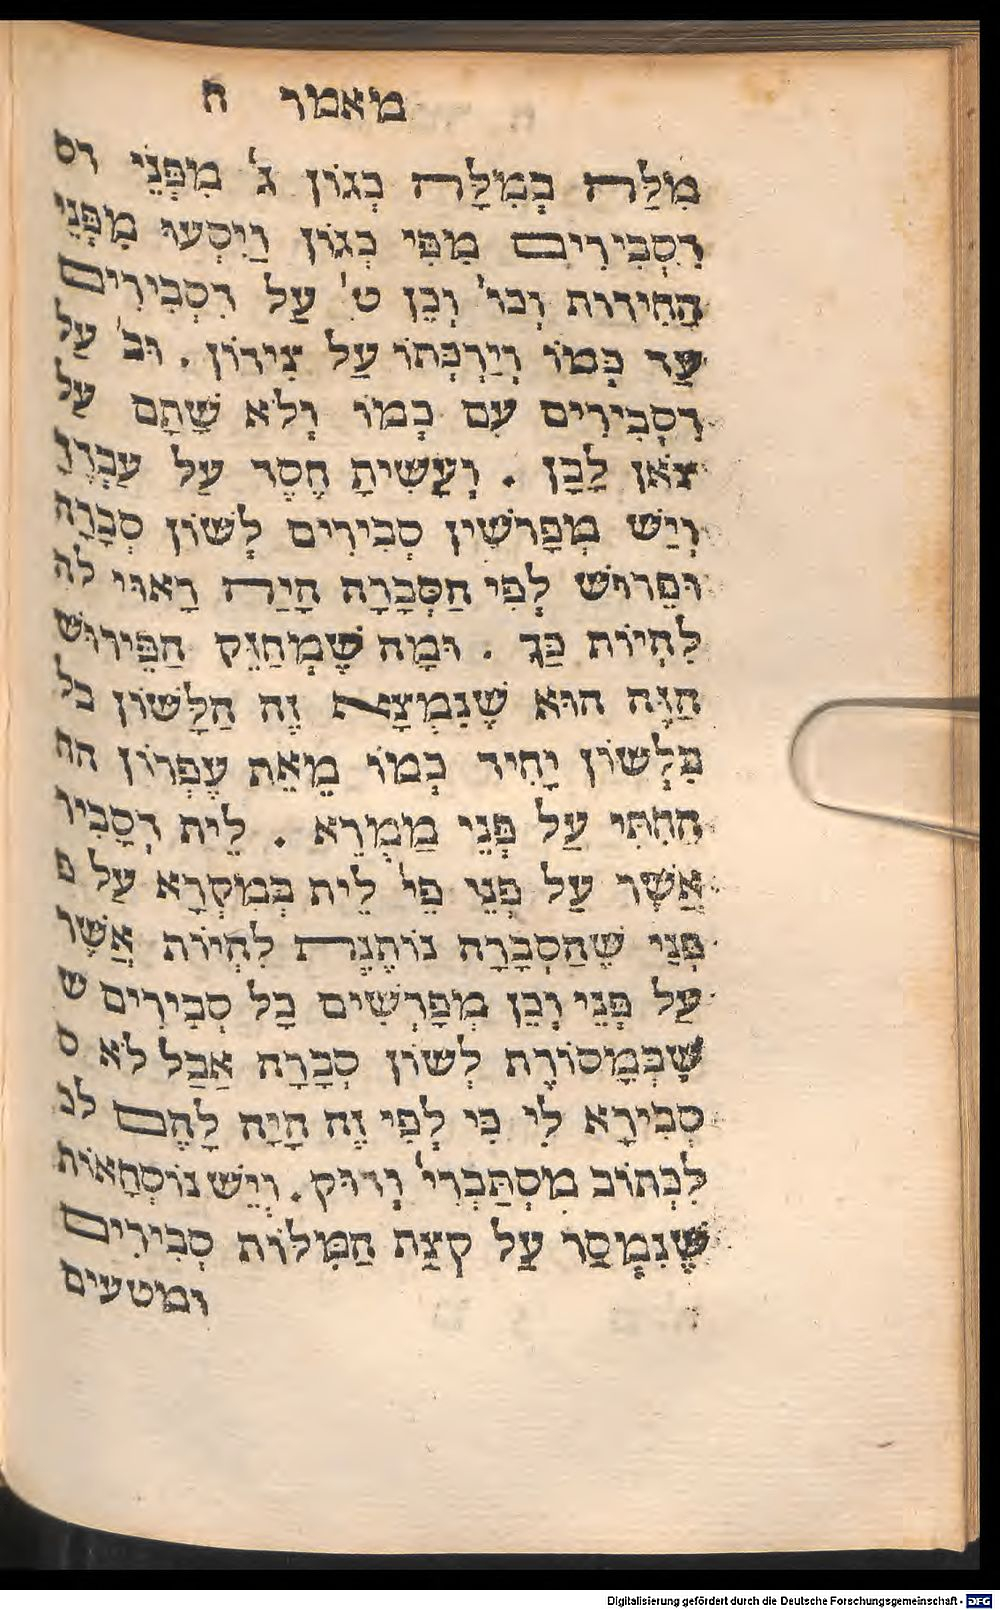 מאמר ח
מִלָּה בְמִלָּה כְּגוֹן ג' מִפְּנֵי דס
דִסְבִירִים מִפִּי כְּגוֹן וַיִסְעוּ מִפְּנֵי
הַחִירוֹת וְכוּ' וְכֵן ט' עַל דִסְבִירִים
עַד כְּמוֹ וְיַרְכָתוֹ עַל צִידוֹן . וּב' עַל
דִסְבִירִים עִם כְמוֹ וְלֹא שָׁתָם עַל
צֹאן לָבָן . וְעָשִׂיתָ חֶסֶד עַל עַבְדֶךָ
וְיֵשׁ מְפָרְשִׁין סְבִירִים לְשׁוֹן סְבָרָה
וּפֵרוּשׁ לְפִי הַסְּבָרָה הָיָה רָאוּי לה
לִהְיוֹת כַּךְ . וּמָה שֶׁמְחַזֵּק הַפֵּירוּשׁ
הַזֶּה הוּא שֶׁנִמְצָא זֶה הַלָּשׁוֹן בל
בִּלְשׁוֹן יָחִיד כְּמוֹ מֵאֵת עֶפְרוֹן הח
הַחִתִּי עַל פְּנֵי מַמְרֵא . לֵית דְסָבִיר
אֲשֶׁר עַל פְּנֵי פֵי' לֵית בְּמִקְרָא עַל פ
פְּנֵי שֶׁהַסְבָרָה נוֹתֶנֶת לִהְיוֹת אֲשֶׁר
עַל פְּנֵי וְכֵן מְפָרְשִׁים כָּל סְבִירִים ש
שֶׁבְּמָסוֹרֶת לְשׁוֹן סְבָרָה אֲבָל לֹא ס
סְבִירָא לִי כִּי לְפִי זֶה הָיָה לָהֶם לכ
לִכְתּוֹב מִסְתַּבְּרִי' וְדוּק . וְיֵשׁ נוֹסְחָאוֹת
שֶׁנִמְסַר עַל קְצַת הַמִּלּוֹת סְבִירִים
ומטעים